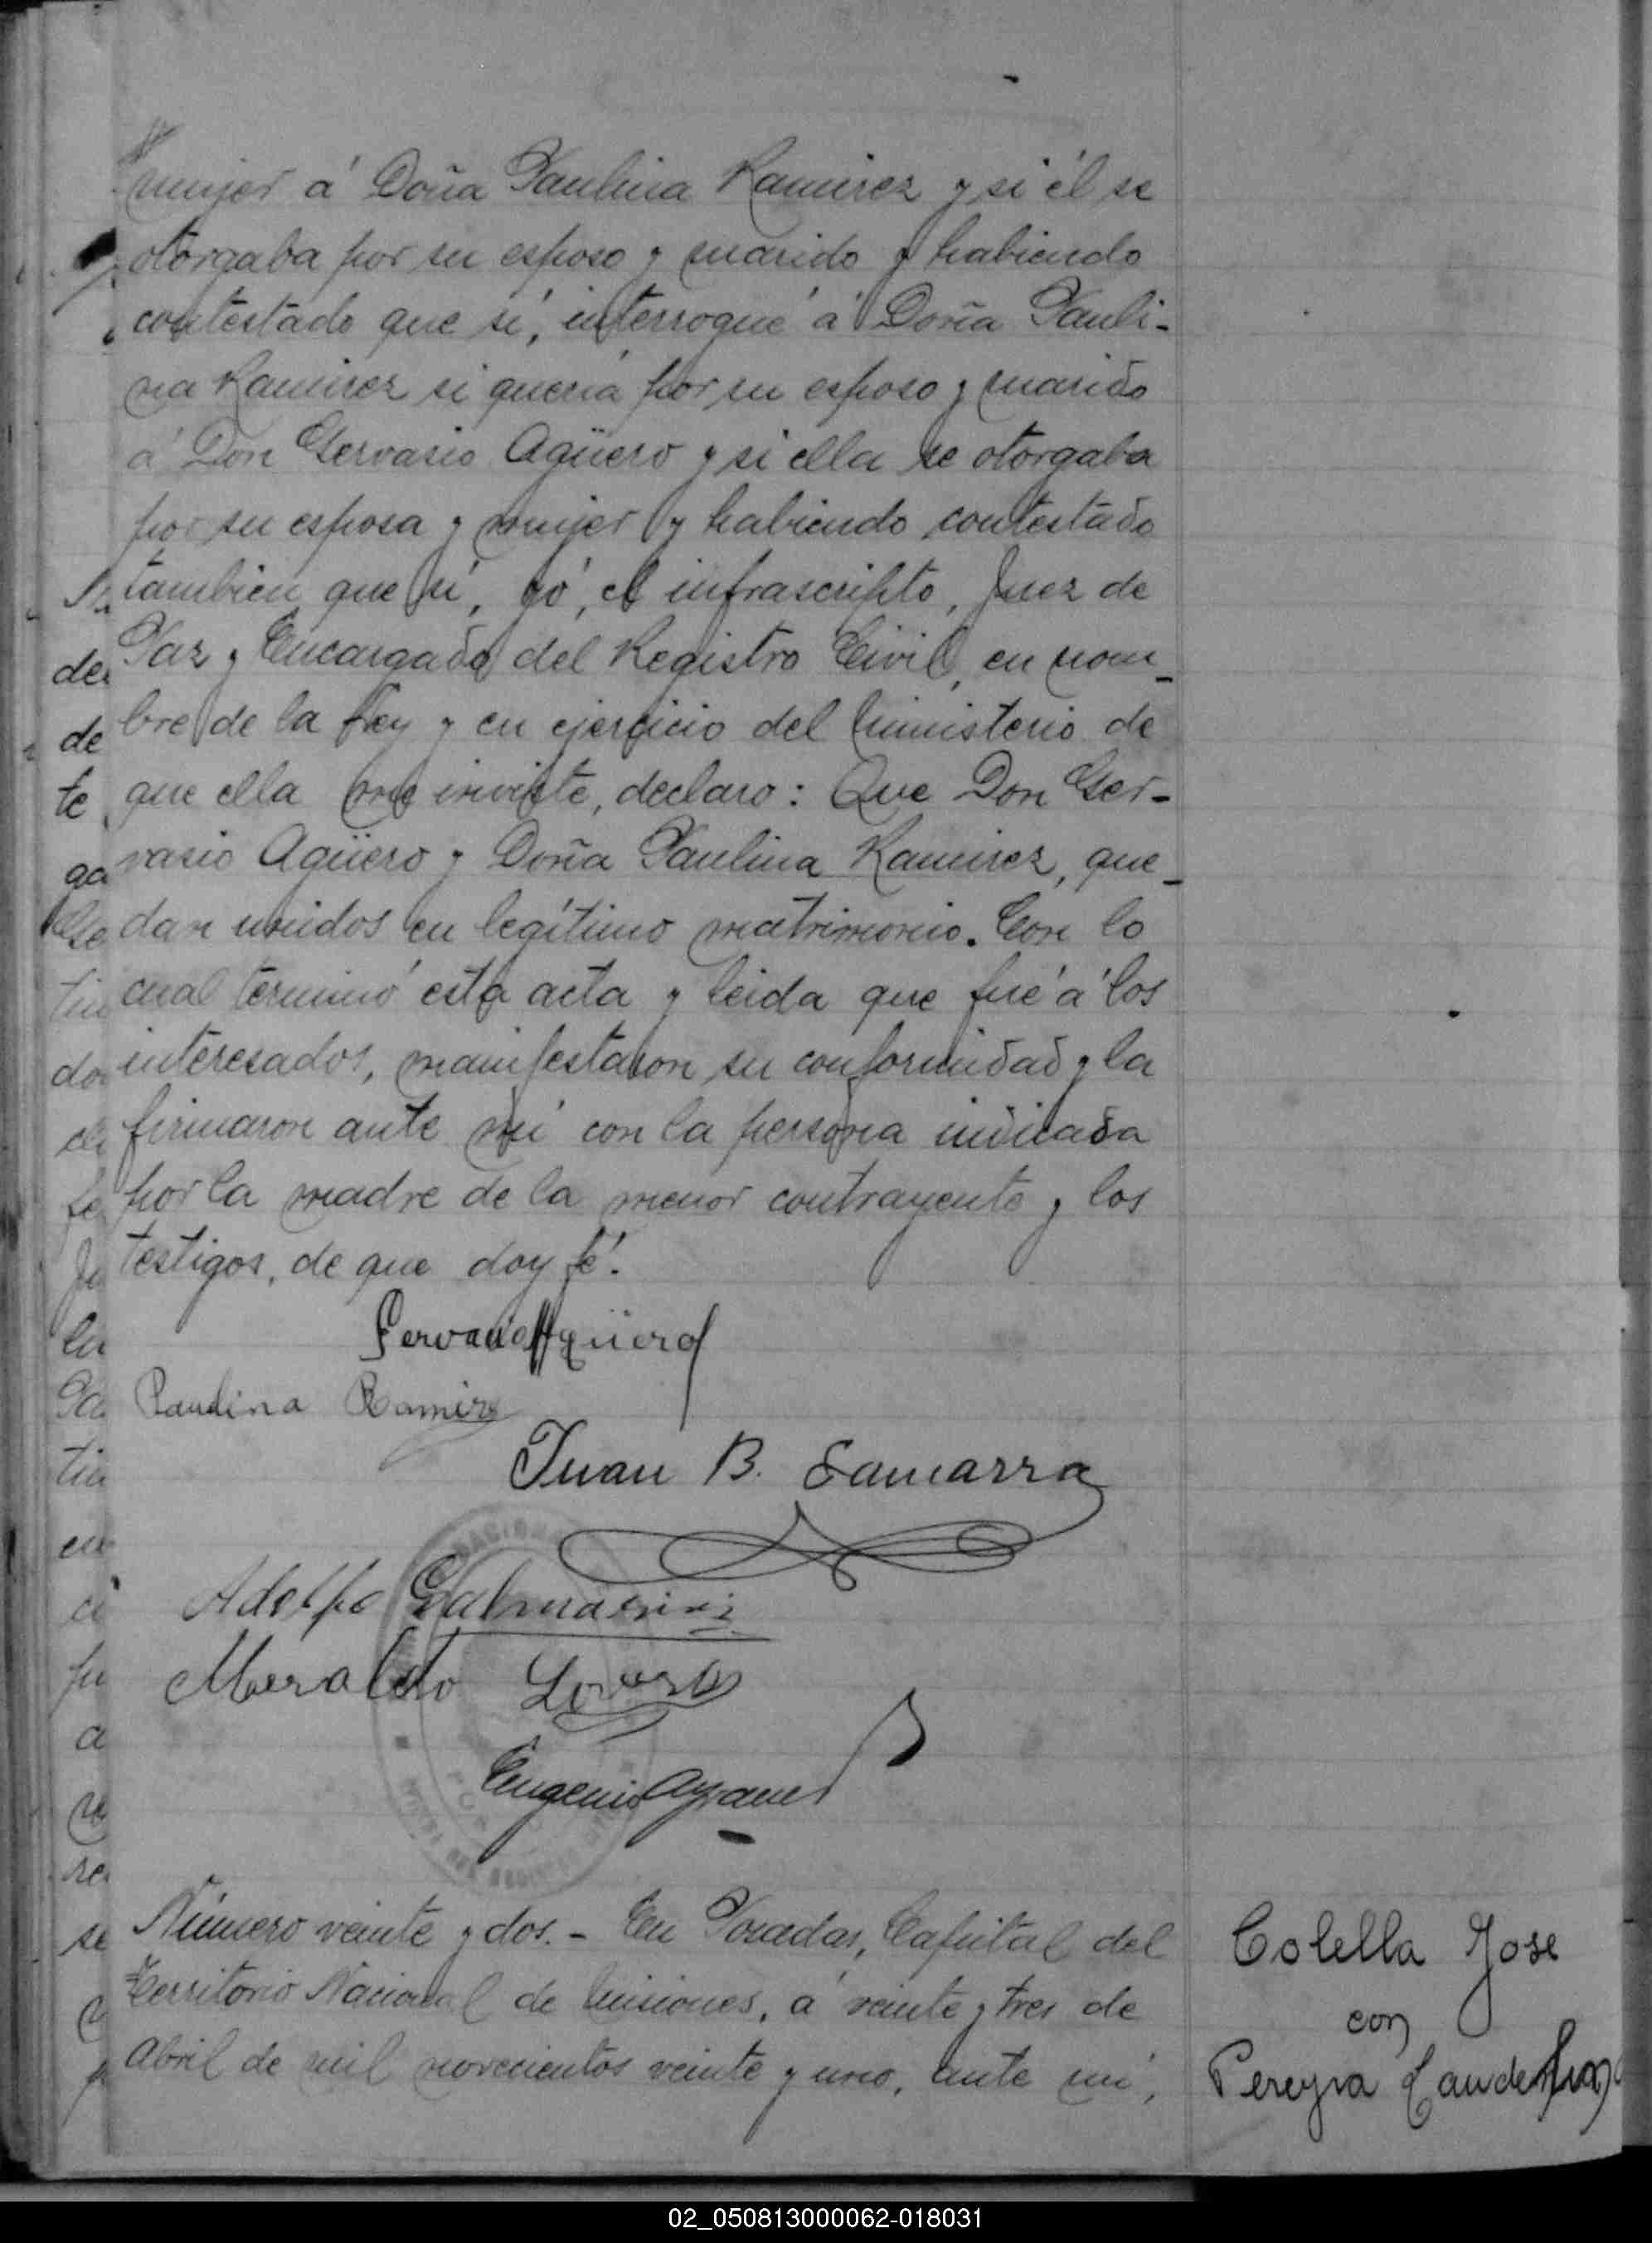 mujer á Doña Paulina Ramirez y si él se
otorgaba por su esposo y marido y habiendo
contestado que sí, interrogué á Doña Pauli-
na Ramirez si quería por su esposo y marido
á Don Gervasio Agüero y si ella se otorgaba
por su esposa y mujer y habiendo contestado
tambien que sí, yó, el infrascripto, Juez de
Paz y Encargado del Registro Civil, en nom-
bre de la Ley y en ejercicio del ministerio de
que ella me inviste, declaro: Que Don Ger-
vasio Agüero y Doña Paulina Ramirez, que-
dan unidos en legítimo matrimonio. Con lo
cual terminó esta acta y leida que fué á los
interesados, manifestaron su conformidad y la
firmaron ante mí con la persona indicada
por la madre de la menor contrayente y los
testigos, de que doy fé.
Gervasio Agüero
Paulina Ramirez
Juan B. Gamarra
Adolfo Galmarini
Meraldo
Eugenio
Número veinte y dos. - En Posadas, Capital del
Territorio Nacional de Misiones, á veinte y tres de
Abril de mil novecientos veinte y uno, ante mí,
Colella Jose
con
Pereyra Candelaria
02_050813000062-018031